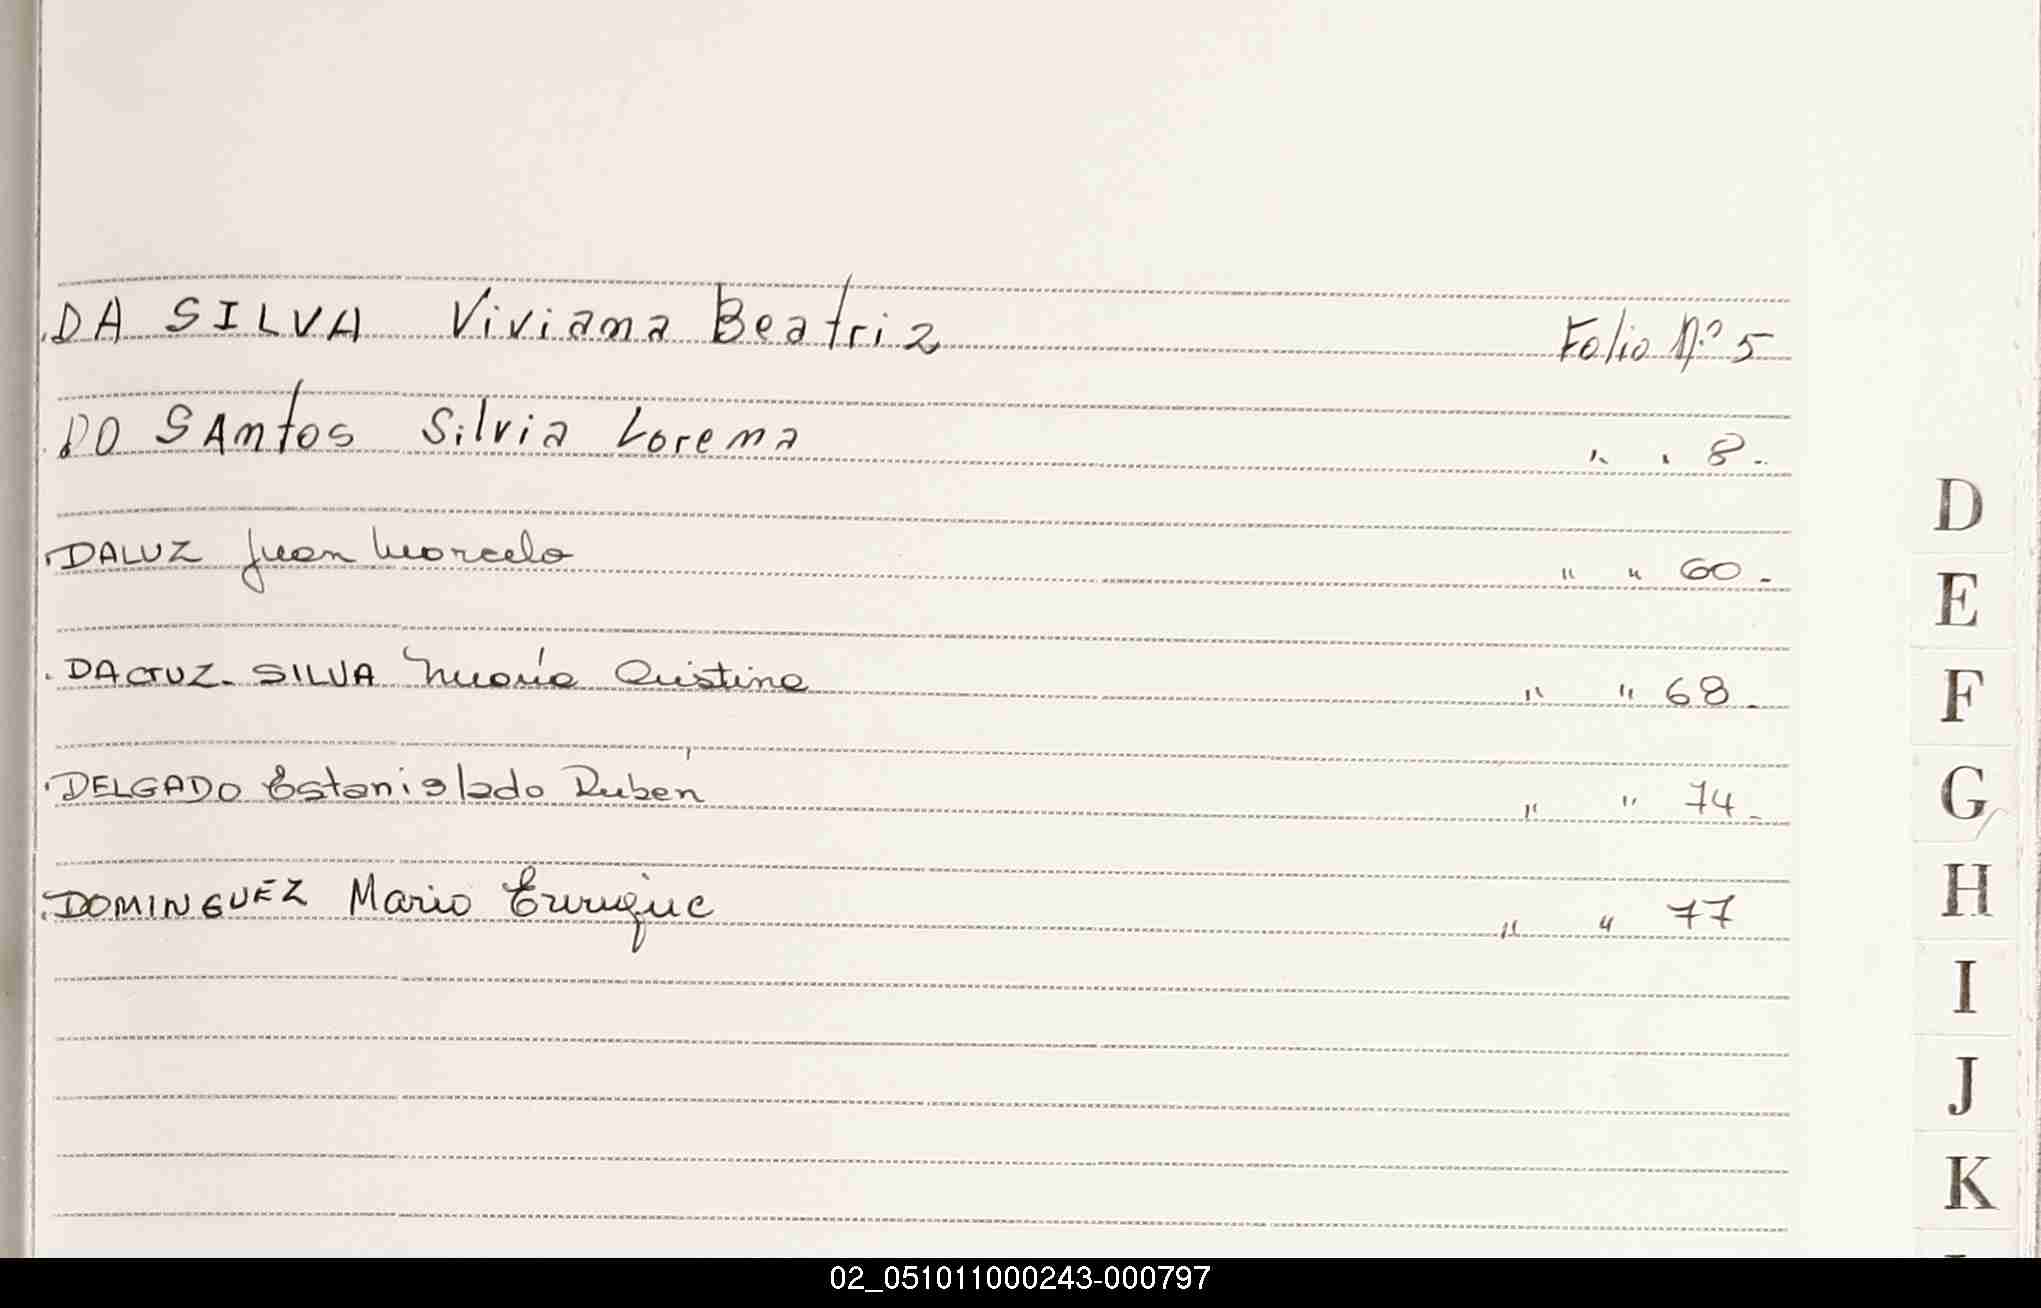 DA SILVA Viviana Beatriz Folio Nº 5
DO SANTOS Silvia Lorena " " 8.-
DALUZ Juan Marcelo " " 60.-
DACRUZ. SILVA María Cristina " " 68.
DELGADO Estanislado Rubén " " 74.-
DOMINGUEZ Mario Enrique " " 77
D
E
F
G
H
I
J
K
02_051011000243-000797